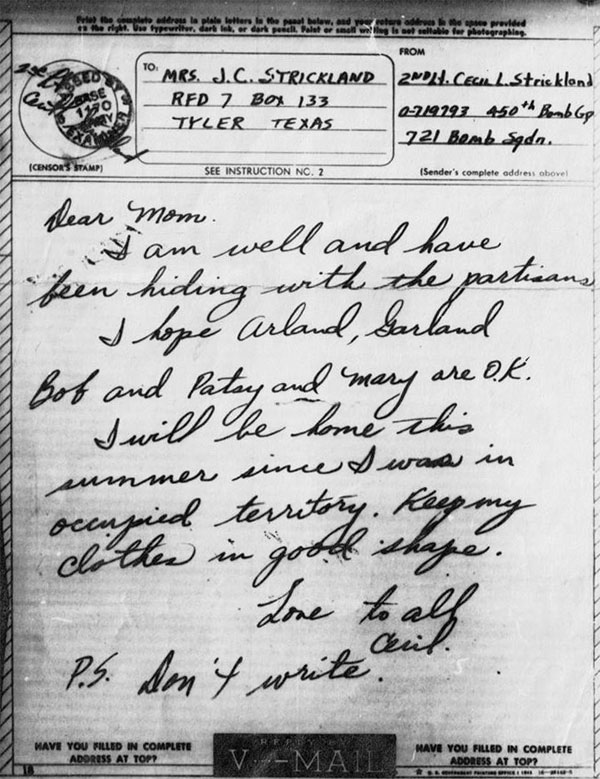 Print the complete address in plain letters in the panel below, and your return address in the space provided
on the right. Use typewriter, dark ink, or dark pencil. Faint or small writing is not suitable for photographing.
FROM
TO:
MRS. J.C. STRICKLAND
RFD 7 BOX 133
TYLER TEXAS
2ND Lt. CECIL L. Strickland
O-719793 450th Bomb Gp
721 Bomb Sqdn.
PASSED BY
BASE
1170
ARMY
EXAMINER
(CENSOR'S STAMP)
SEE INSTRUCTION NO. 2
(Sender's complete address above)
Dear Mom.
I am well and have
been hiding with the partisans
I hope Arland, Garland
Bob and Patsy and Mary are O.K.
I will be home this
summer since I was in
occupied territory. Keep my
clothes in good shape.
Love to all
Cecil.
P.S. Don't write.
HAVE YOU FILLED IN COMPLETE
ADDRESS AT TOP?
V···—MAIL
HAVE YOU FILLED IN COMPLETE
ADDRESS AT TOP?